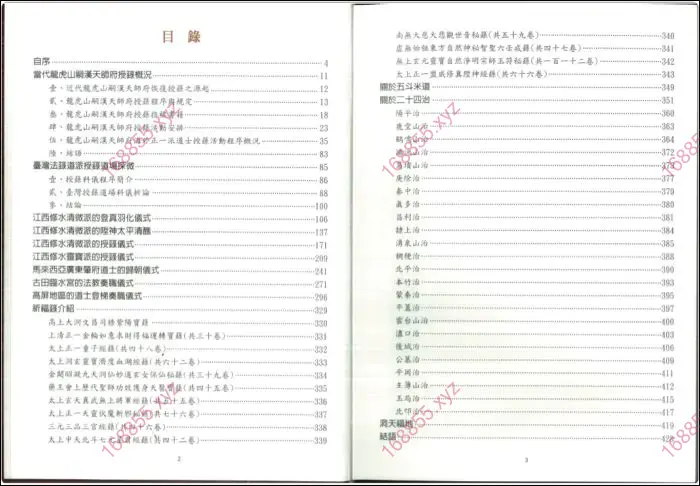 目錄
自序 4
當代龍虎山嗣漢天師府授籙概況 11
壹、近代龍虎山嗣漢天師府恢復授籙之源起 12
貳、龍虎山嗣漢天師府授籙程序與規定 13
參、龍虎山嗣漢天師府 18
肆、龍虎山嗣漢天師府 動安排 23
伍、 正一派道士授籙活動程序概況 35
陸、結語 83
臺灣法籙道派授籙道場探微 85
壹、授籙科儀程序簡介 86
貳、臺灣授籙道場科儀析論 88
參、結論 100
江西修水清微派的登真羽化儀式 106
江西修水清微派的陞神太平清醮 137
江西修水清微派的授籙儀式 171
江西修水靈寶派的授籙儀式 209
馬來西亞廣東肇府道士的歸朝儀式 241
古田臨水宮的法教奏職儀式 271
高屏地區的道士登梯奏職儀式 296
祈福籙介紹 329
高上大洞文昌司祿紫陽寶籙 330
上清正一金輪如意求財得福運轉寶籙(共三十卷) 331
太上正一童子經籙(共四十八卷) 332
太上洞玄靈寶濟度血湖經籙(共六十二卷) 333
金闕昭凝九天洞仙妙道玄女保仙秘籙(共三十卷) 334
藥王會上歷代聖師功效護身天醫寶籙(共四十五卷) 335
太上玄天真武無上將軍經籙(共五十五卷) 336
太上正一天靈伏魔斬邪秘籙(共七十六卷) 337
三元三品三官經籙(共四十六卷) 338
太上中天北斗七元星君籙(共四十二卷) 339
2
南無大慈大悲觀世音秘籙(共五十九卷) 340
虛無始祖東方自然神秘智聖六壬戒籙(共四十七卷) 341
無上玄元靈寶自然淨明宗師玉符秘籙(共一百一十二卷) 342
太上正一盟威修真陞神經籙(共六十六卷) 343
關於五斗米道 349
關於二十四治 351
陽平治
鹿堂山治
鶴鳴山治
漓沅山治
葛璝山治 377
庚除治 379
秦中治 381
真多治 383
昌利治 385
隸上治 387
湧泉山治 389
稠稉治 391
北平治 393
本竹治 395
蒙秦治 397
平蓋治 399
雲台山治 401
濜口治 403
後城治 405
公慕治 407
平岡治 409
主簿山治
玉局治
北邙治 417
洞天福地 419
結語 428
3
168855.xyz
168855.xyz
168855.xyz
168855.xyz
168855.xyz
168855.xyz